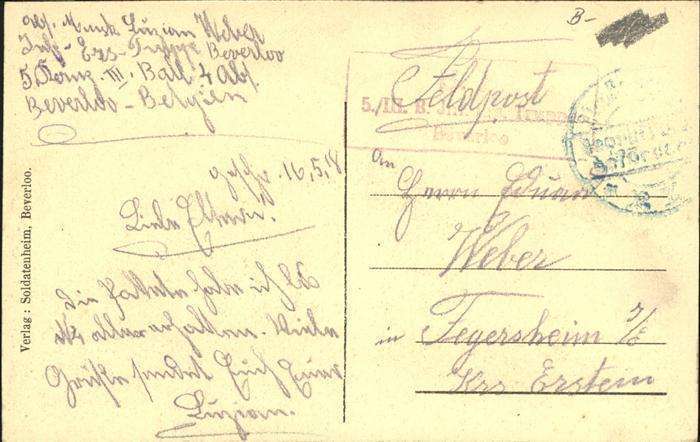 Abs. Musk. Luzian Weber
Inf-Ers-Truppe Beverloo
5. Komp. III. Batl. 4 Abt.
Beverloo-Belgien
B-
Feldpost
5./III. B. Truppe
Beverloo
geschr. 16,5,18
Liebe Eltern!
Die Pakete habe ich bis
alle erhalten. Viele
Grüße sendet Euch Euer
Luzian.
An
Herrn Eduard
Weber
in Fegersheim i/E
Krs Erstein
Verlag: Soldatenheim, Beverloo.